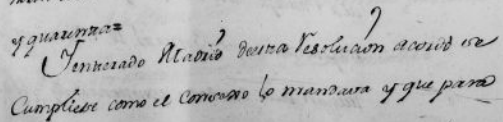 y quarenta=
Y enterado Madrid de esta resolución acordó se
Cumpliese como el Consexo lo mandava y que para